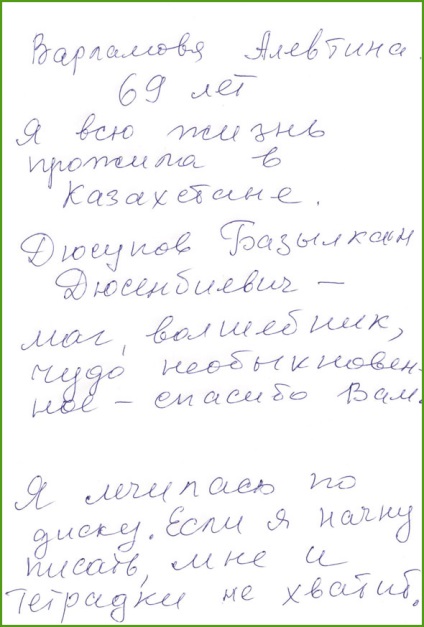 Варламова Алевтина.
69 лет
Я всю жизнь
прожила в
Казахстане.
Дюсупов Базылкан
Дюсенбиевич –
маг, волшебник,
чудо необыкновен-
ное – спасибо Вам.
Я лечилась по
диску. Если я начну
писать, мне и
тетрадки не хватит.